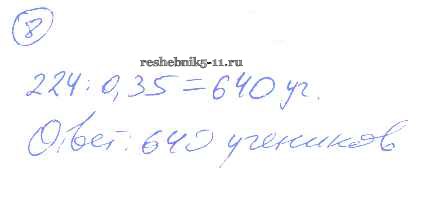 8
reshebnik5-11.ru
224 : 0,35 = 640 уч.
Ответ: 640 учеников